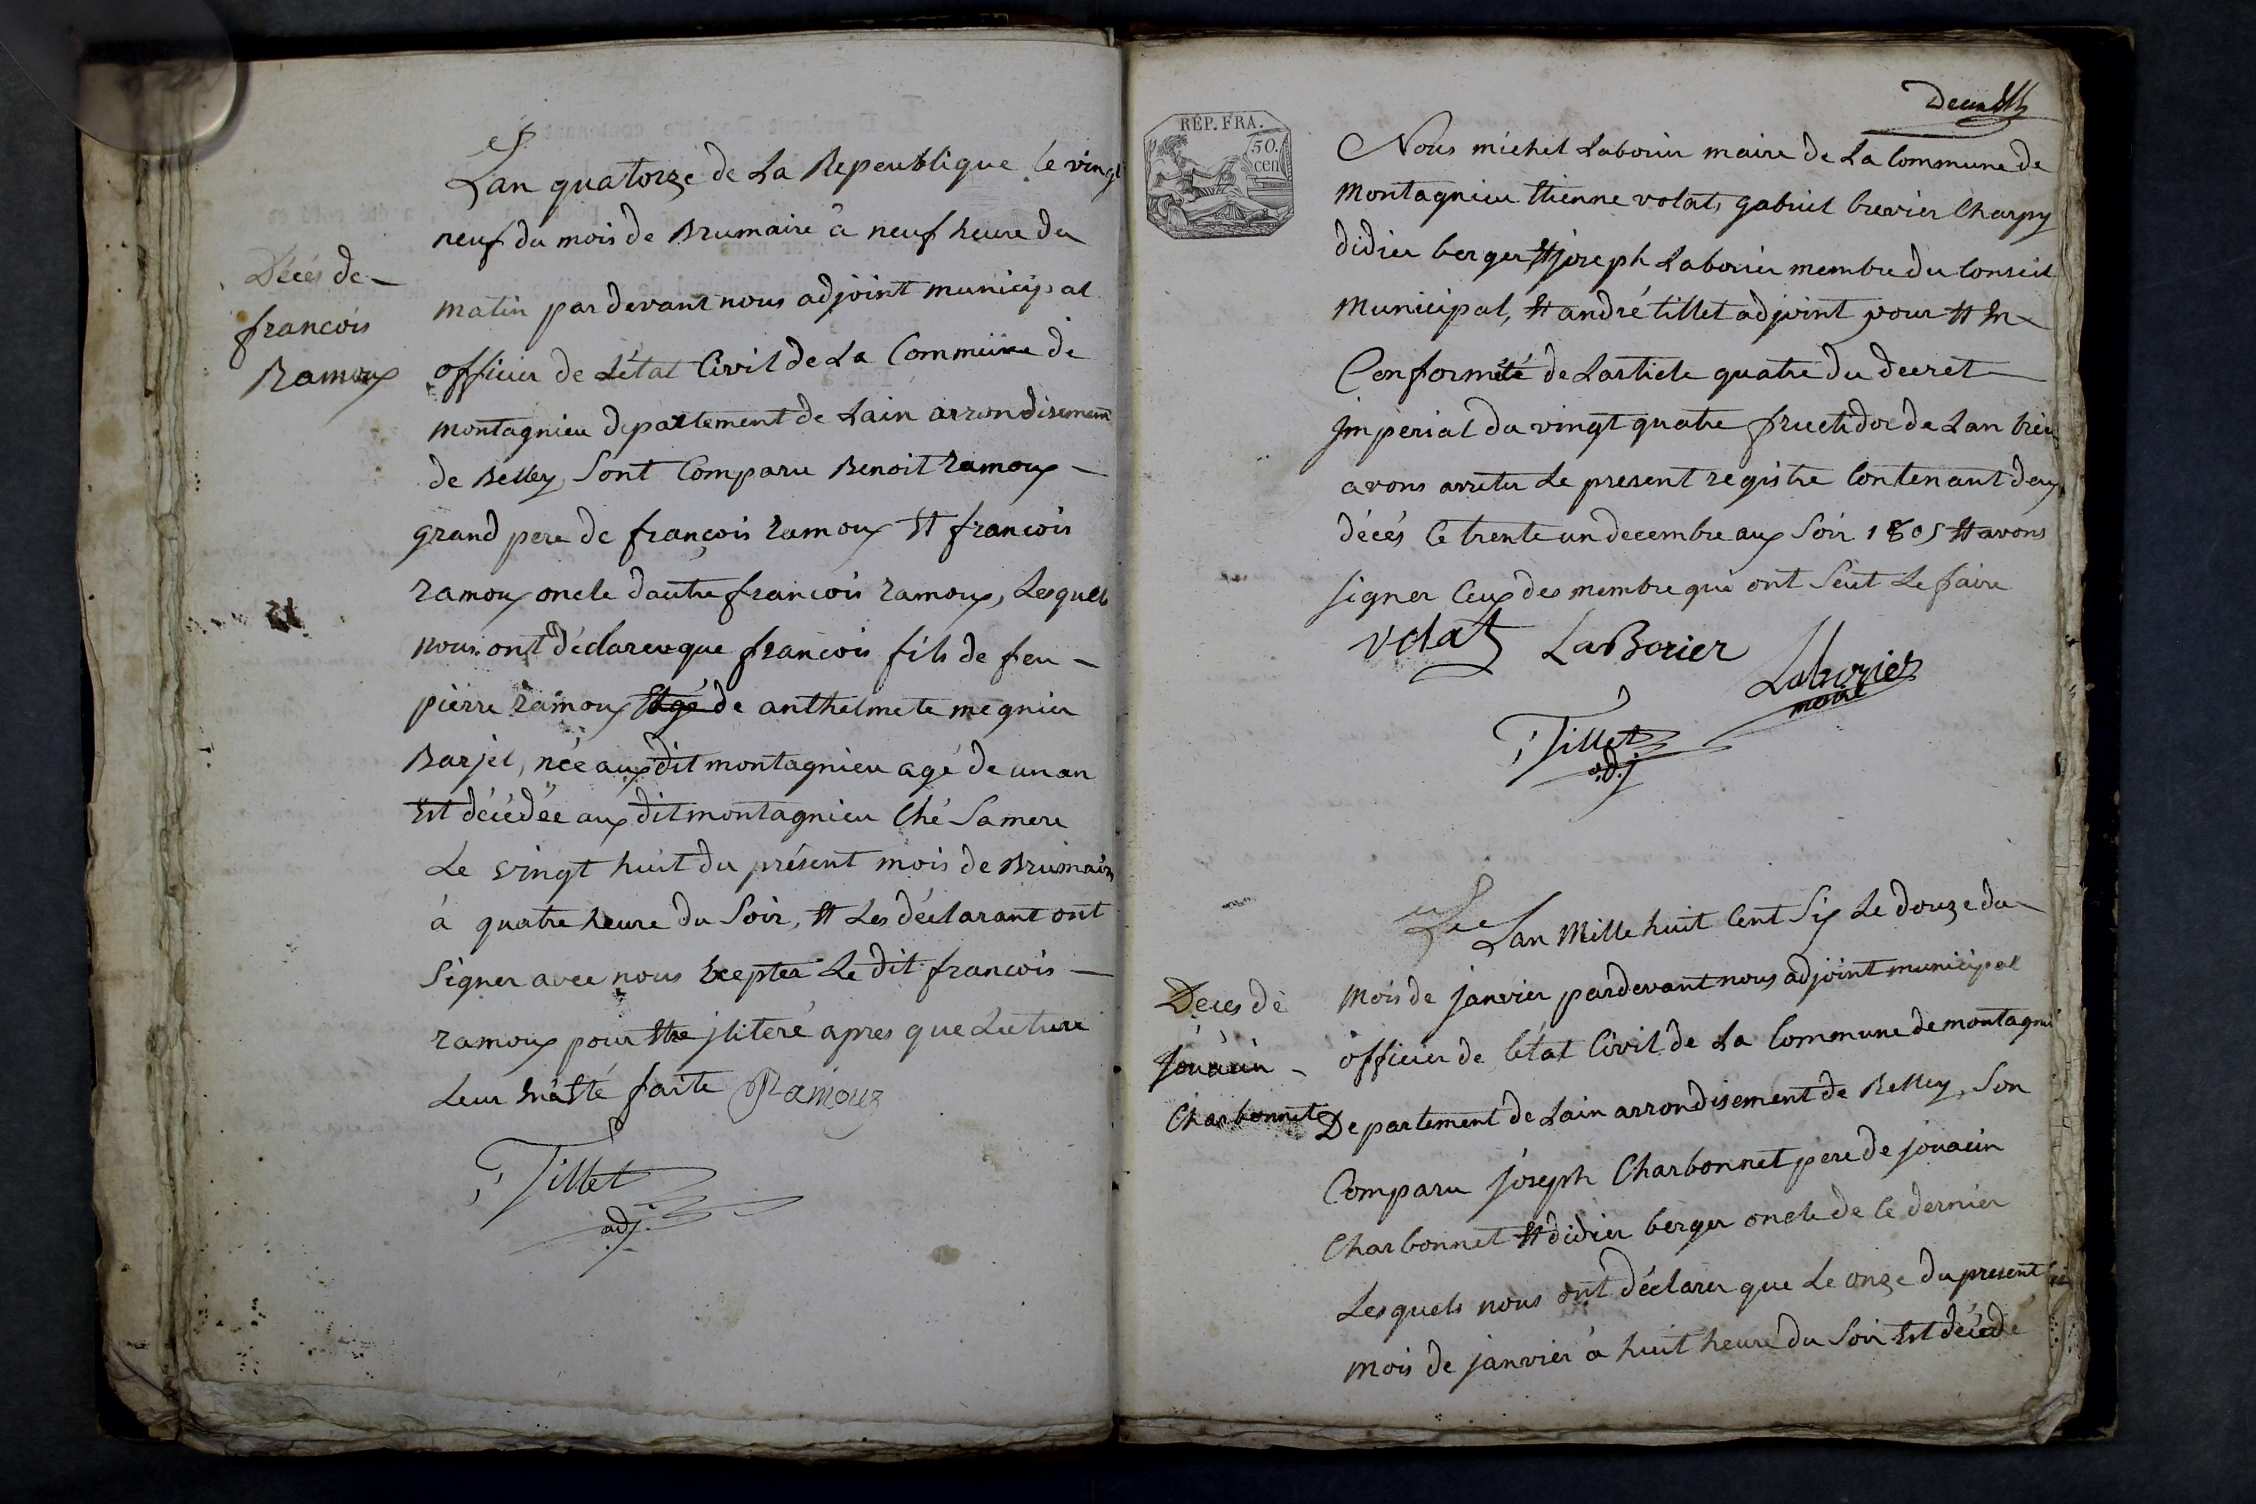 Décés de
francois
Ramoux
Lan quatorze de La Repeublique le vingt
neuf du mois de Brumaire à neuf heure du
matin par devant nous adjoint municipal
officier de L'état Civil de La Commune de
montagnieu departement de Lain arrondisement
de Belley, Sont Comparu Benoit ramoux
grand pere de françois ramoux Et francois
ramoux oncle dautre francois ramoux, Lesquels
nous ont déclareu que francois fils de feu
pierre ramoux de anthelmete megnier
Barjel, née aux dit montagnieu agé de un an
Est décédée aux dit montagnieu Ché Sa mere
Le vingt huit du présent mois de Brumaire
à quatre heure du Soir, Et Les déclarant ont
Signer avec nous Excepter Le dit francois
ramoux pour Etre jliteré apres que Lecture
Leur En a Eté faite Ramoux
Tillet
adj.
REP. FRA.
50.
cen
Nous michel Laborier maire de La Commune de
Montagnieu Etienne volat, gabriel brevier Charpy
didier berger Et joseph Laborier membre du Conseil
Municipal, Et andré tillet adjoint pour Et En
Conformité de Larticle quatre du decret
jmperial du vingt quatre fructidor de Lan
avons arreter Le present registre Contenant deux
décés le trente un decembre aux Soir 1805 Et avons
signer Ceux des membre qui ont Seut Le faire
Volat LaBorier
Laborier
maire
Tillet
adj
Deces de
jouacin
Charbonnet
Lan Mille huit Cent Six Le douze du
Mois de janvier pardevant nous adjoint municipal
officier de l'état Civil de La Commune de montagni
Departement de Lain arrondisement de Belley, Son
Comparu joseph Charbonnet pere de jouacin
Charbonnet Et didier berger oncle de Ce dernier
Lesquels nous ont déclarer que Le onze du present
mois de janvier à huit heure du Soir Est décédé